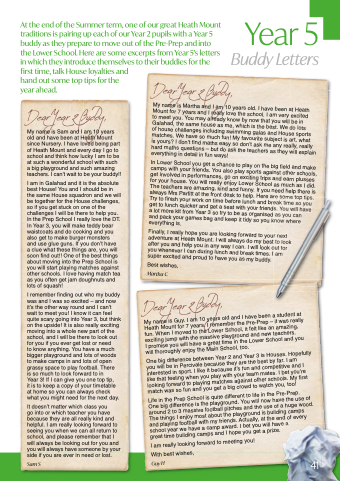 At the end of the Summer term, one of our great Heath Mount
traditions is pairing up each of our Year 2 pupils with a Year 5
buddy as they prepare to move out of the Pre-Prep and into
the Lower School. Here are some excerpts from Year 5's letters
in which they introduce themselves to their buddies for the
first time, talk House loyalties and
hand out some top tips for the
year ahead.
Year 5
Buddy Letters
Dear Year 2 Buddy,
My name is Sam and I am 10 years
old and have been at Heath Mount
since Nursery. I have loved being part
of Heath Mount and every day I go to
school and think how lucky I am to be
at such a wonderful school with such
a big playground and such amazing
teachers. I can't wait to be your buddy!
I am in Galshed and it is the absolute
best House! You and I should be in
the same House squadron and we will
be together for the House challenges,
so if you get stuck on one of the
challenges I will be there to help you.
In the Prep School I really love the DT.
In Year 3, you will make teddy bear
waistcoats and do cooking and you
also get to make hunger monsters
and use glue guns. If you don't have
a clue what these things are, you will
soon find out!! One of the best things
about moving into the Prep School is
you will start playing matches against
other schools. I love having match tea
as you often get jam doughnuts and
lots of squash!
I remember finding out who my buddy
was and I was so excited – and now
it's the other way round and I can't
wait to meet you! I know it can feel
quite scary going into Year 3, but think
on the upside! It is also really exciting
moving into a whole new part of the
school, and I will be there to look out
for you if you ever get lost or need
to know anything. You have a much
bigger playground and lots of woods
to make camps in and lots of open
grassy space to play football. There
is so much to look forward to in
Year 3! If I can give you one top tip,
it is to keep a copy of your timetable
at home so you can always check
what you might need for the next day.
It doesn't matter which class you
go into or which teacher you have
because they are all really kind and
helpful. I am really looking forward to
seeing you when we can all return to
school, and please remember that I
will always be looking out for you and
you will always have someone by your
side if you are ever in need or lost.
Sam S
Dear Year 2 Buddy,
My name is Martha and I am 10 years old. I have been at Heath
Mount for 7 years and I really love the school, I am very excited
to meet you. You may already know by now that you will be in
Galshed, the same house as me, which is the best. We do lots
of house challenges including swimming galas and House sports
matches. We have so much fun! My favourite subject is art, what
is yours? I don't find maths easy so don't ask me any really, really
hard maths questions – but do ask the teachers as they will explain
everything in detail (in fun ways)!
In Lower School you get a chance to play on the big field and make
camps with your friends. You also play sports against other schools,
get involved in performances, go on exciting trips and earn plusses
for your house. You will really enjoy Lower School as much as I did.
The teachers are amazing, kind and funny. If you need help there is
always Mrs Pettit at the front desk to help. Here are some top tips.
Try to finish your work on time before lunch and break time so you
get to lunch quicker and get a seat with your friends. You will have
a lot more kit from Year 3 so try to be as organised as you can
and pack your games bag and keep it tidy so you know where
everything is.
Finally, I really hope you are looking forward to your next
adventure at Heath Mount. I will always do my best to look
after you and help you in any way I can. I will look out for
you whenever I can during lunch and break times. I am
super excited and proud to have you as my buddy.
Best wishes,
Dear Year 2 Buddy,
My name is Guy. I am 10 years old and I have been a student at
Heath Mount for 7 years. I remember the Pre-Prep – it was really
fun. When I moved to the Lower School, it felt like an amazing,
exciting jump with the massive playground and new teachers.
I promise you will have a great time in the Lower School and you
will thoroughly enjoy the Main School, too.
One big difference between Year 2 and Year 3 is Houses. Hopefully
you will be in Perivale because they are the best by far. I am
interested in sport. I like it because it's fun and competitive and I
like that feeling when you play with your team mates. I bet you're
looking forward to playing matches against other schools. My first
match was so fun and you get a big crowd to watch you, too!
Life in the Prep School is quite different to life in the Pre-Prep.
One big difference is the playground. You will now have the use of
around 2 to 3 massive football pitches and the use of a huge wood.
The things I enjoy most about the playground is building camps
and playing football with my friends. Actually, at the end of every
school year we have a camp award. I bet you will have a
great time building camps and I hope you get a prize.
I am really looking forward to meeting you!
With best wishes,
41